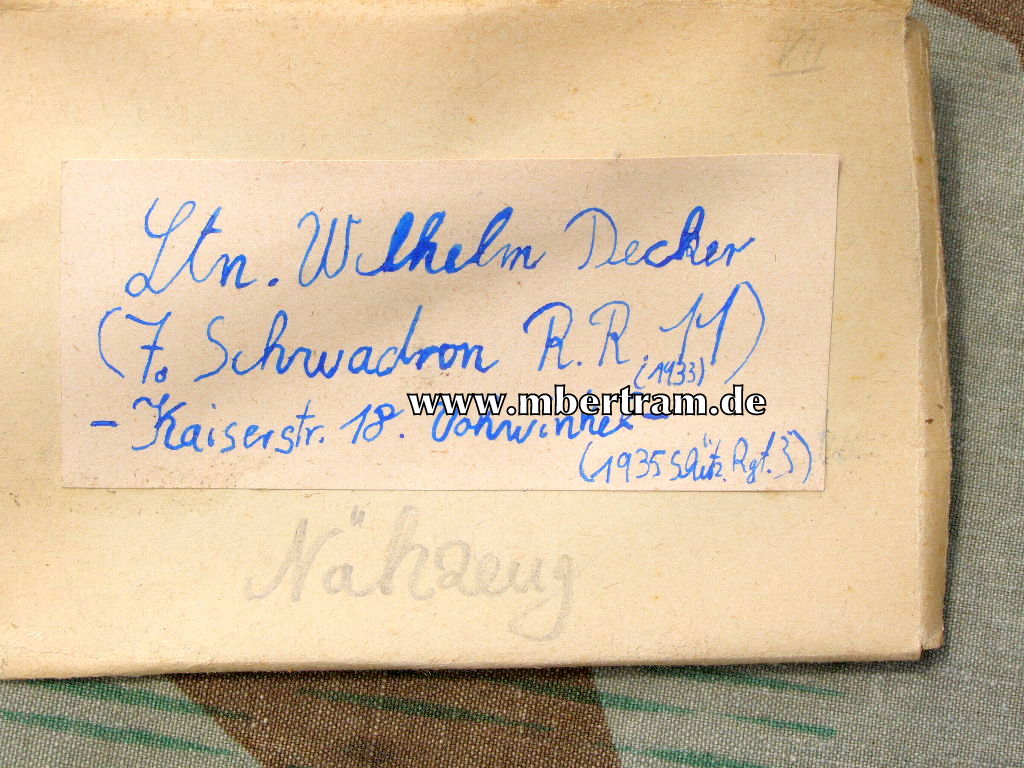 VII
Ltn. Wilhelm Decker
(7. Schwadron R.R 11)
(1933)
www.mbertram.de
- Kaiserstr. 18. Vohwinkel -
(1935 Schütz. Rgt. 3)
Nähzeug